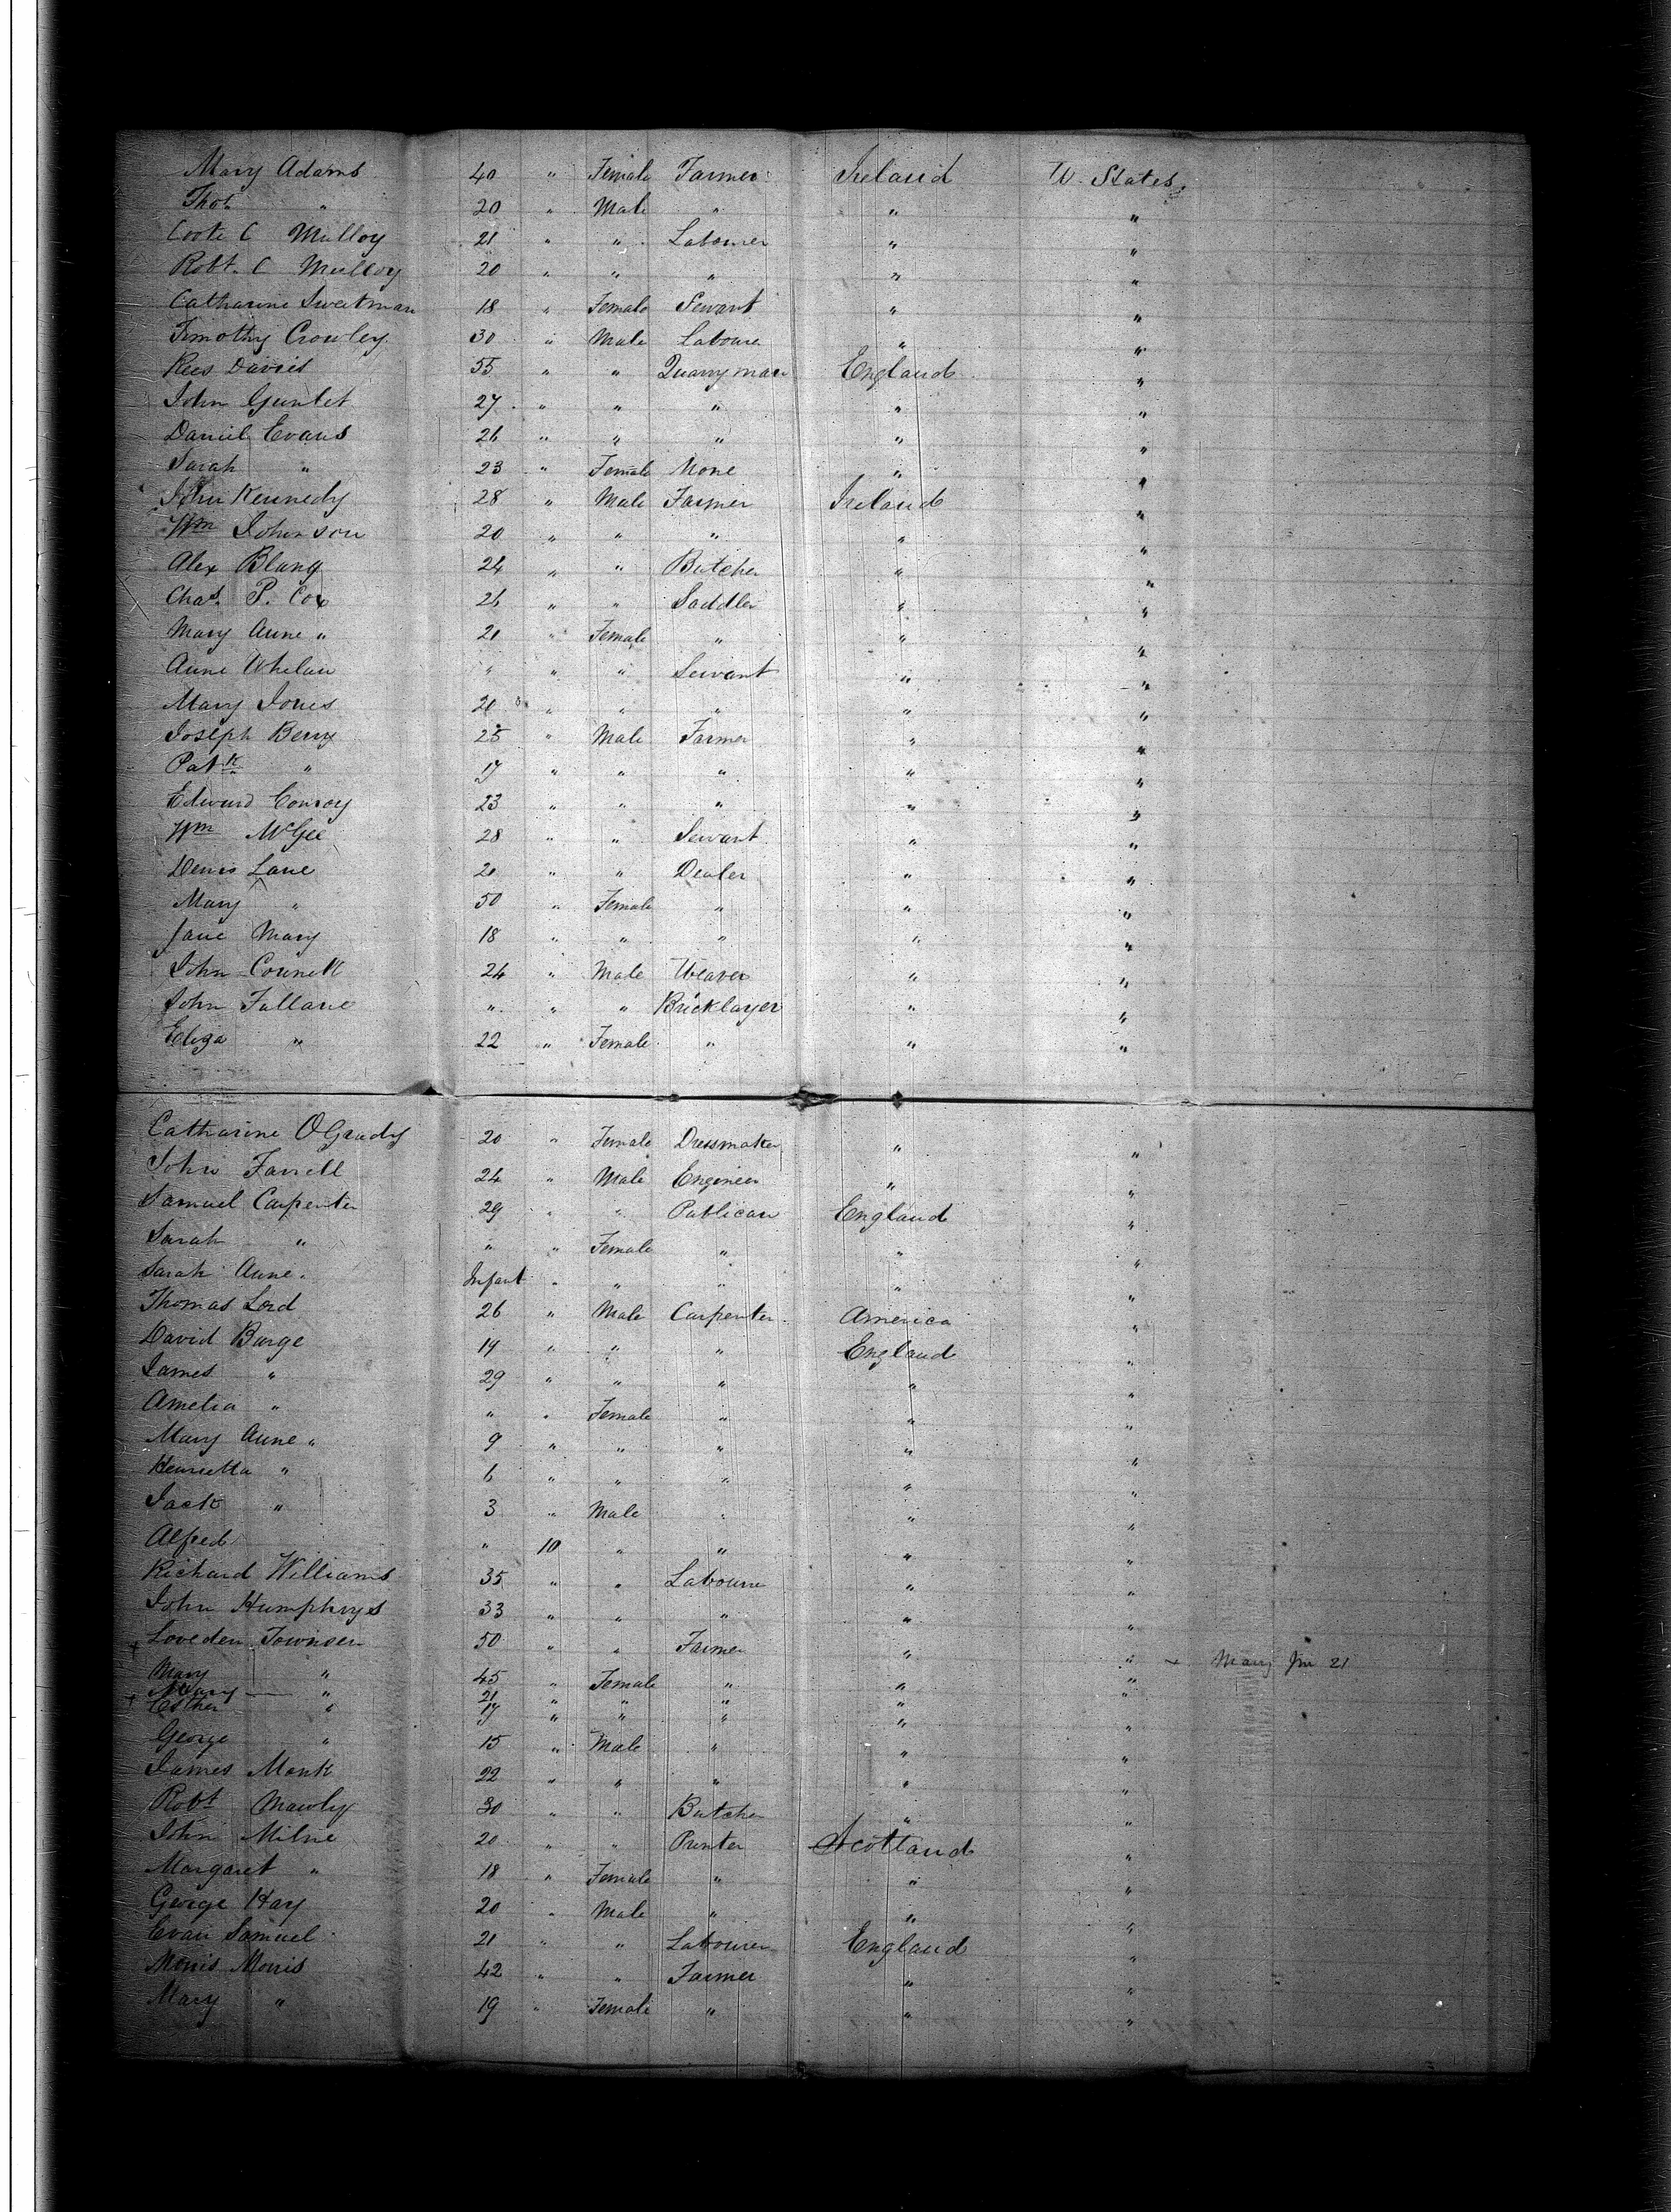 Mary Adams 40 " Female Farmer Ireland U. States
Thos. " 20 " Male " " "
Coote C Mulloy 21 " " Labourer " "
Robt. C Mulloy 20 " " " " "
Catharine Sweetman 18 " Female Servant " "
Timothy Crowley 30 " Male Laboure " "
Rees Davies 55 " " Quarryman England "
John Guntet 27 " " " " "
Daniel Evans 26 " " " " "
Sarah " 23 " Female None " "
John Kennedy 28 " Male Farmer Ireland "
Wm Johnson 20 " " " " "
Alex Blang 24 " " Butcher " "
Chas. P. Cox 26 " " Saddler " "
Mary Anne " 21 " Female " " "
Anne Whelan " " " Servant " "
Mary Jones 20 " " " " "
Joseph Berry 25 " Male Farmer " "
Patk " 17 " " " " "
Edward Conroy 23 " " " " "
Wm McGee 28 " " Servant " "
Denis Lane 20 " " Dealer " "
Mary " 50 " Female " " "
Jane Mary 18 " " " " "
John Connell 24 " Male Weaver " "
John Fallane " " " Bricklayer " "
Eliza " 22 " Female " " "
Catharine OGrady 20 " Female Dressmaker " "
John Farrell 24 " Male Engineer " "
Samuel Carpenter 29 " " Publican England "
Sarah " " " Female " " "
Sarah Anne " Infant " " " " "
Thomas Lord 26 " Male Carpenter America "
David Burge 19 " " " England "
James " 29 " " " " "
Amelia " " " Female " " "
Mary Anne " 9 " " " " "
Henrietta " 6 " " " " "
Jack " 3 " Male " " "
Alfred " 10 " " " "
Richard Williams 35 " " Laboure " "
John Humphrys 33 " " " " "
+ Loveden Townsen 50 " " Farmer " " + Mary Jnr 21
Mary " 45 " Female " " "
Mary " 21 " " " " "
+ Esther " 17 " " " " "
George " 15 " Male " " "
James Monk 22 " " " " "
Robt Mawly 30 " " Butcher " "
John Milne 20 " " Printer Scotland "
Margaret " 18 " Female " " "
George Hay 20 " Male " " "
Evan Samuel 21 " " Labourer England "
Morris Morris 42 " " Farmer " "
Mary " 19 " Female " " "